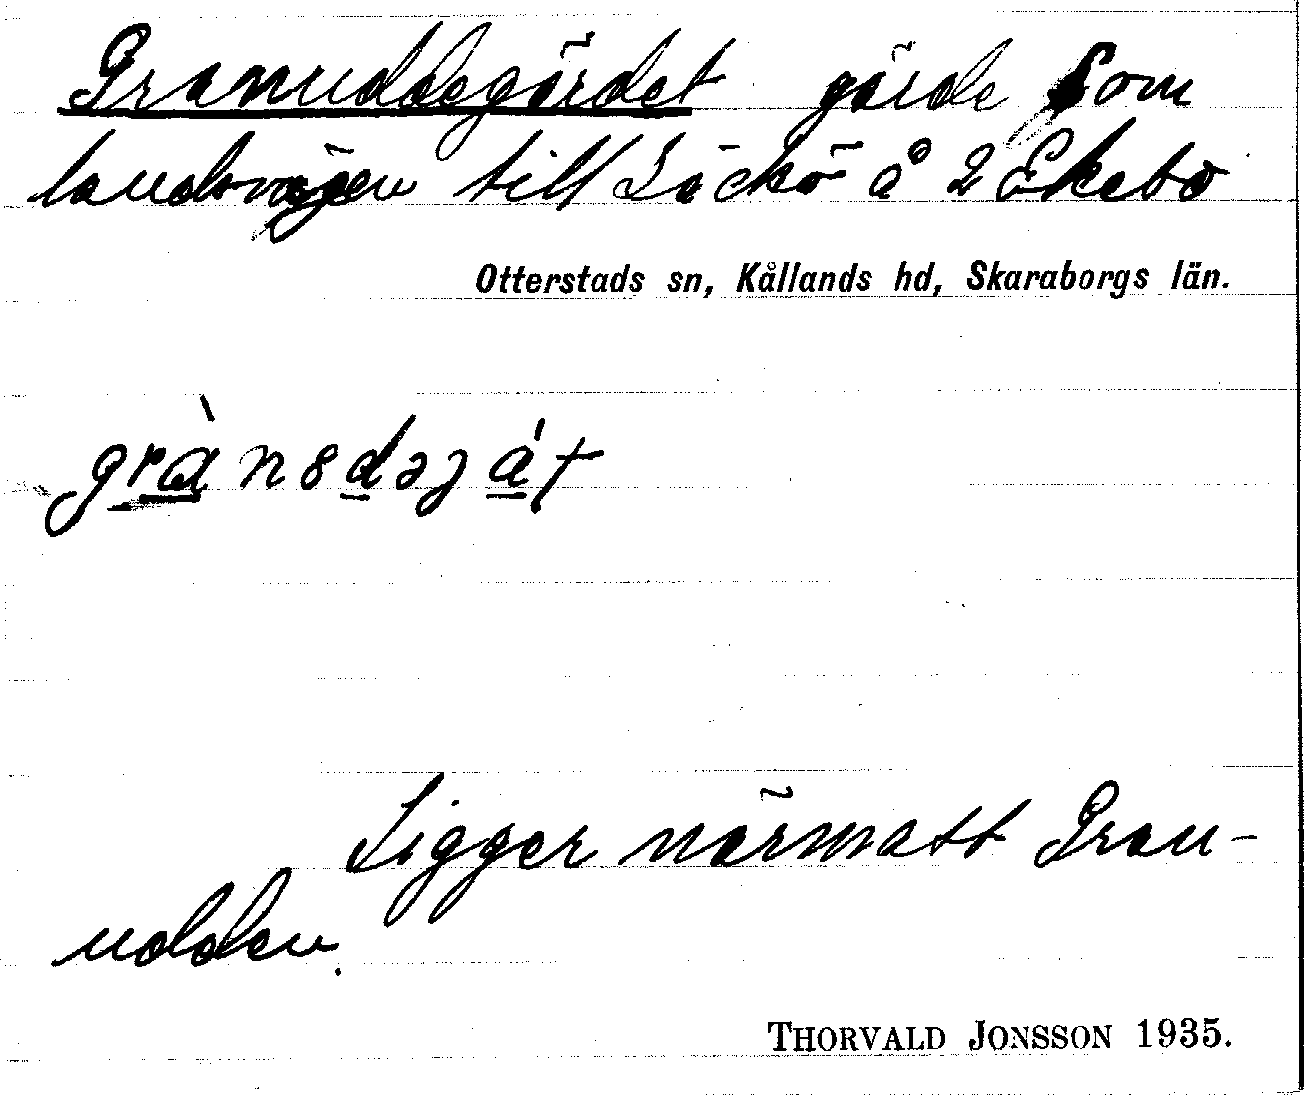 Granuddegärdet gärde som
landsvägen till Läckö å 2 Ekebo
Otterstads sn, Kållands hd, Skaraborgs län.
grànsdəját
Ligger närmast Gran-
udden.
THORVALD JONSSON 1935.